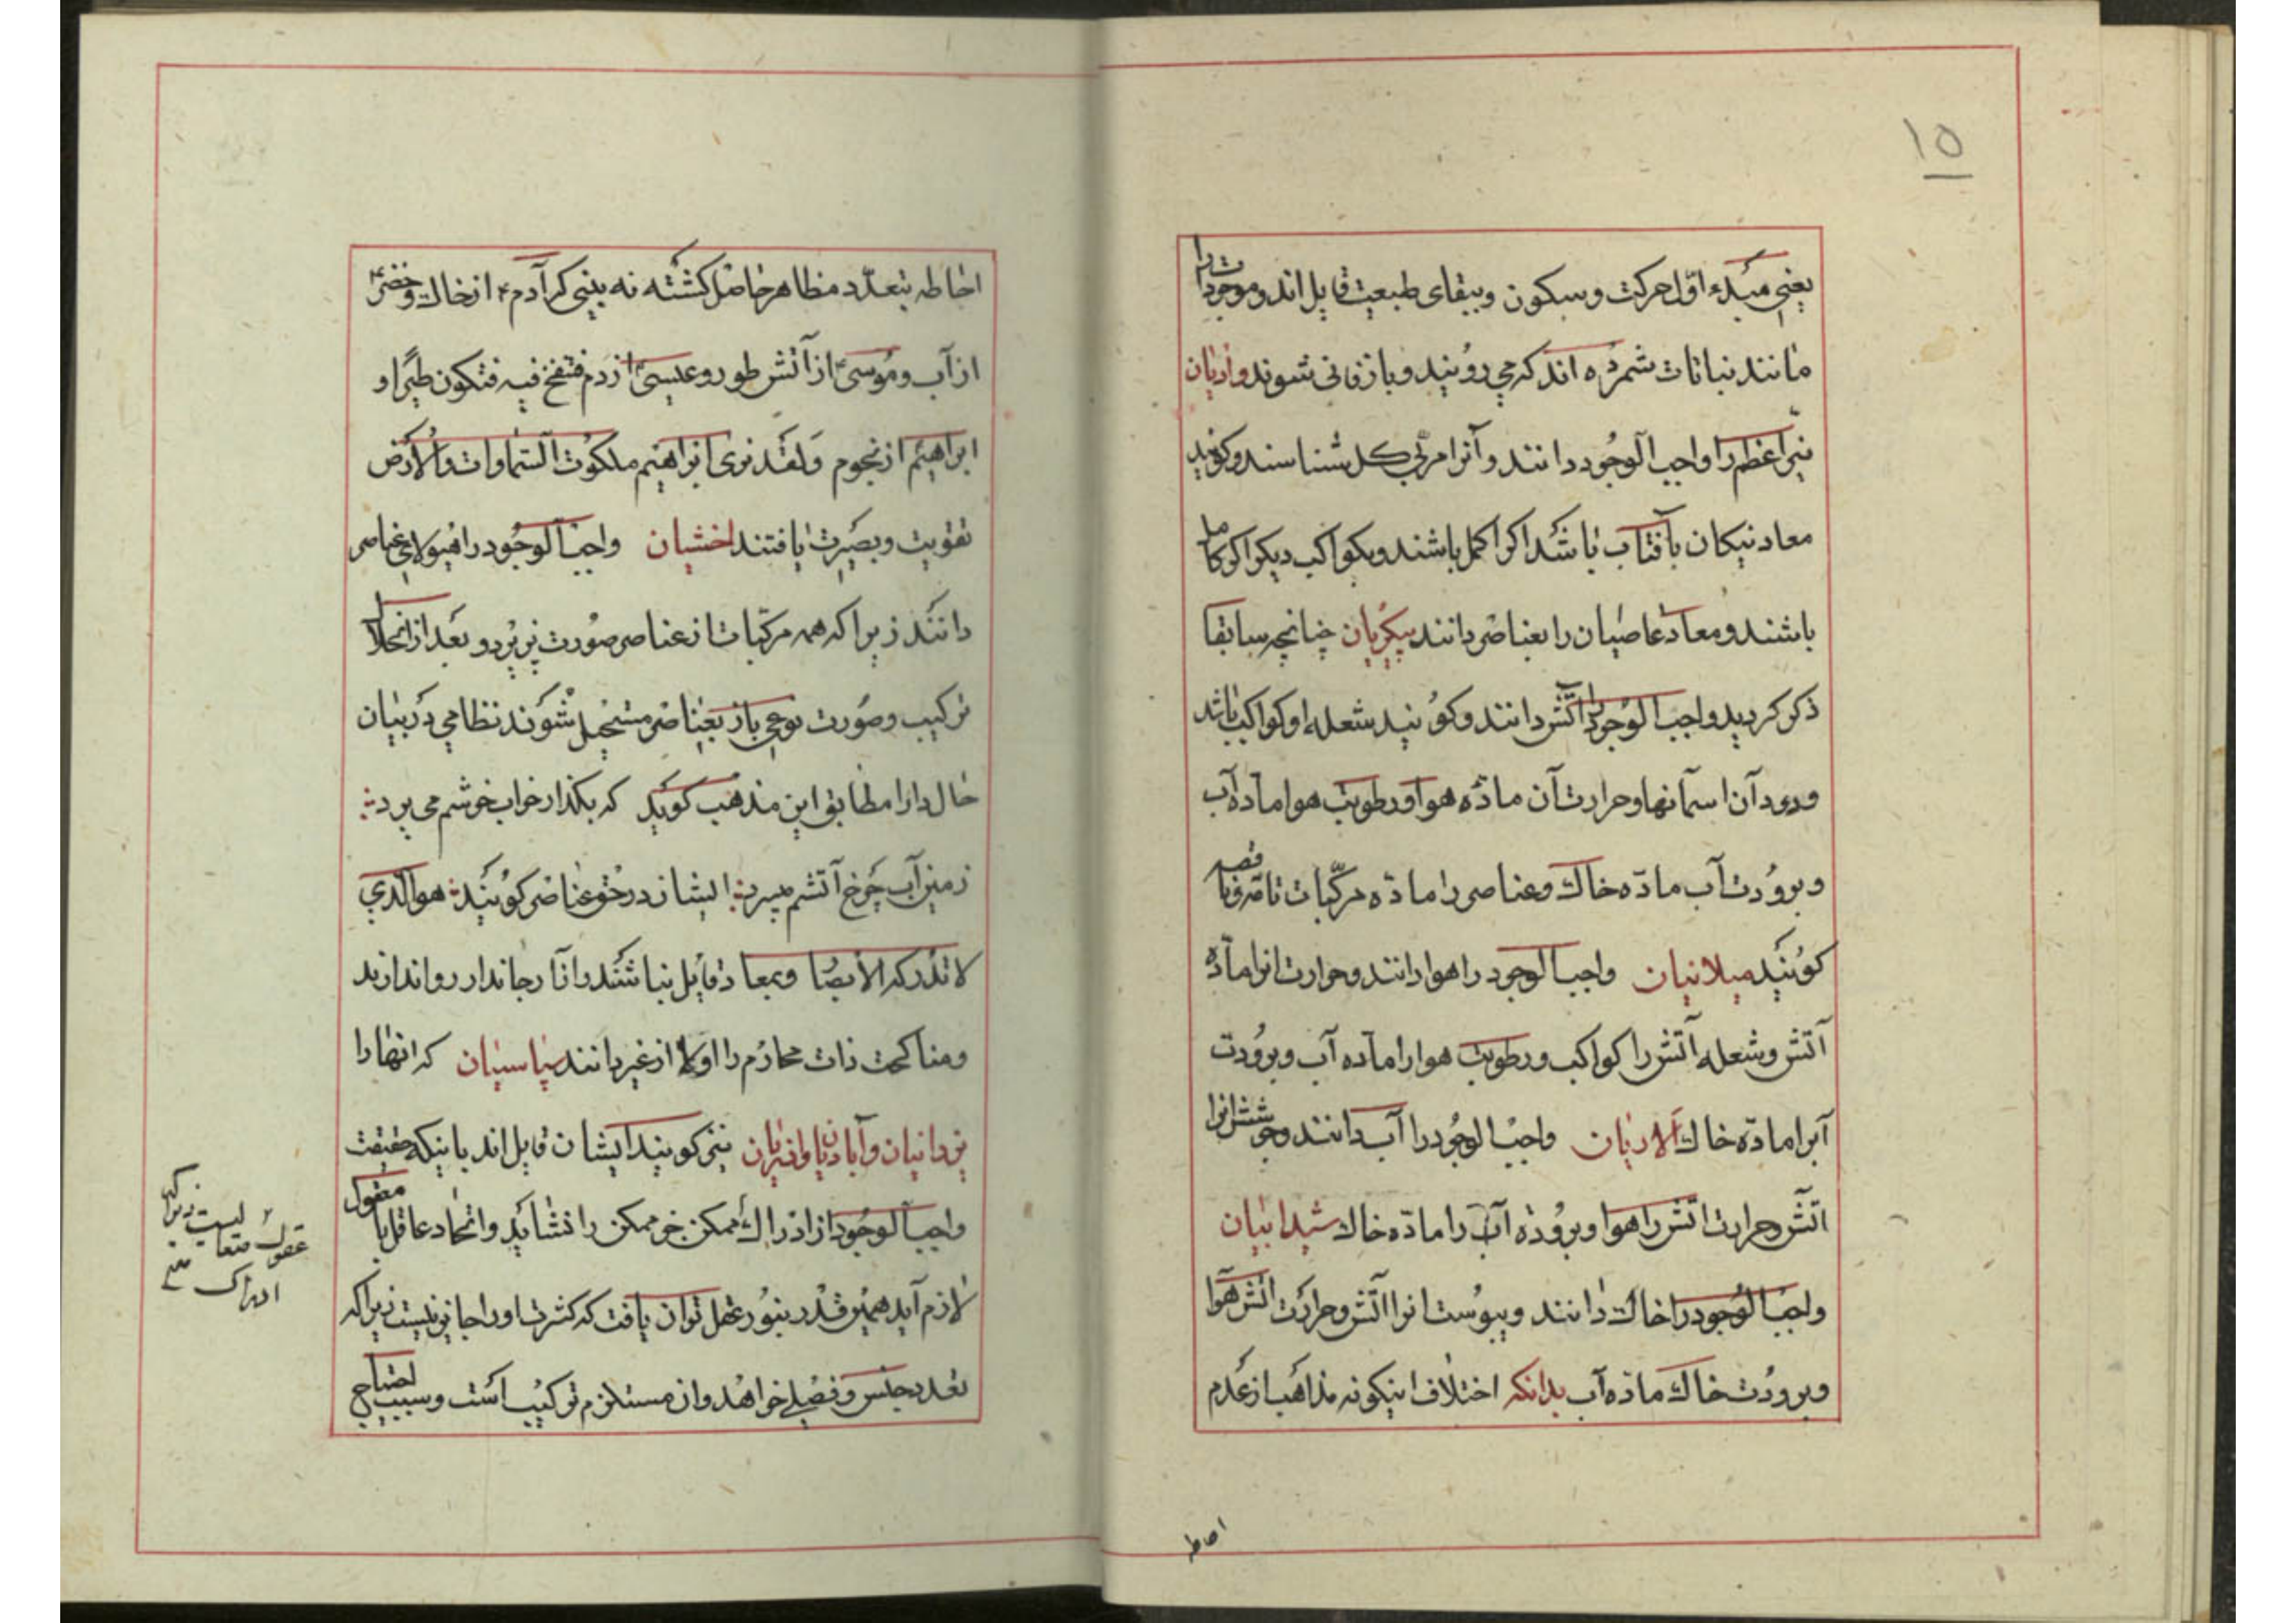 ۱۵
یعنی مبدء اوّل حرکت و سکون و ببقای طبیعت قایل اند و موجودات را
مانند نباتات شمرده اند که می رویند و باز فانی شوند و ادیان
نیّر اعظم را واجب الوجود دانند و آنرا مربّی کل شناسند و کویند
معاد نیکان بآفتاب باشد اکر اکمل باشند و بکواکب دیکر اکر کامل
باشند و معاد عاصیان را بعناصر دانند پیکریان چنانچه سابقا
ذکر کردید واجب الوجود را آتش دانند و کویند شعله او کواکب باشد
و دود آن اسمانها و حرارت آن مادّه هوا و رطوبت هوا مادّه آب
و برودت آب مادّه خاک و عناصر را مادّه مرکّبات تامّه و ناقصه
کویند میلانیان واجب الوجود را هوا دانند و حرارت انرا مادّه
آتش و شعله آتش را کواکب و رطوبت هوا را مادّه آب و برودت
آبرا مادّه خاک آلاریان واجب الوجود را آب دانند و جوشش انرا
اتش و حرارت اتش را هوا و برودة آب را مادّه خاک شیدابیان
واجب الوجود را خاک دانند و یبوست انرا اتش و حرارت اتش هوا
و برودت خاک مادّه آب بدانکه اختلاف اینکونه مذاهب از عدم
احاطه
احاطه بتعدّد مظاهر حاصل کشته نه بینی که آدم ع از خاک و خضر ع
از آب و موسی ع از آتش طور و عیسی ع از دم فتنفخ فیه فتکون طیرا و
ابراهیم از نجوم ولقد نری ابراهیم ملکوت السماوات والارض
تقویت و بصیرت یافتند اخشیان واجب الوجود را هیولای عناصر
دانند زیرا که همه مرکّبات از عناصر صورت پذیرد و بعد از انحلال
ترکیب و صورت نوعی باز بعناصر مستحیل شوند نظامی در بیان
حال دارا مطابق این مذهب کوید که بکذار خواب خوشم می برد
زمین آب چرخ آتشم میبرد ایشان در حق عناصر کویند هو الذی
لا تدرکه الابصار و بمعاد قایل نباشند و ازار جاندار روا ندارند
و مناکحت ذات محارم را اولا از غیر دانند سپاسیان که انها را
یزدانیان و آبادیان و اذریان نیز کویند ایشان قایل اند باینکه حقیقت
واجب الوجود از ادراک ممکن خو ممکن را نشاید و اتحاد عاقل با معقول
لازم آید همین قدر بنور عقل توان یافت که کثرت او را جایز نیست زیرا که
تعدد جنس و فصلی خواهد و ان مستلزم ترکیب است و سبب احتیاج